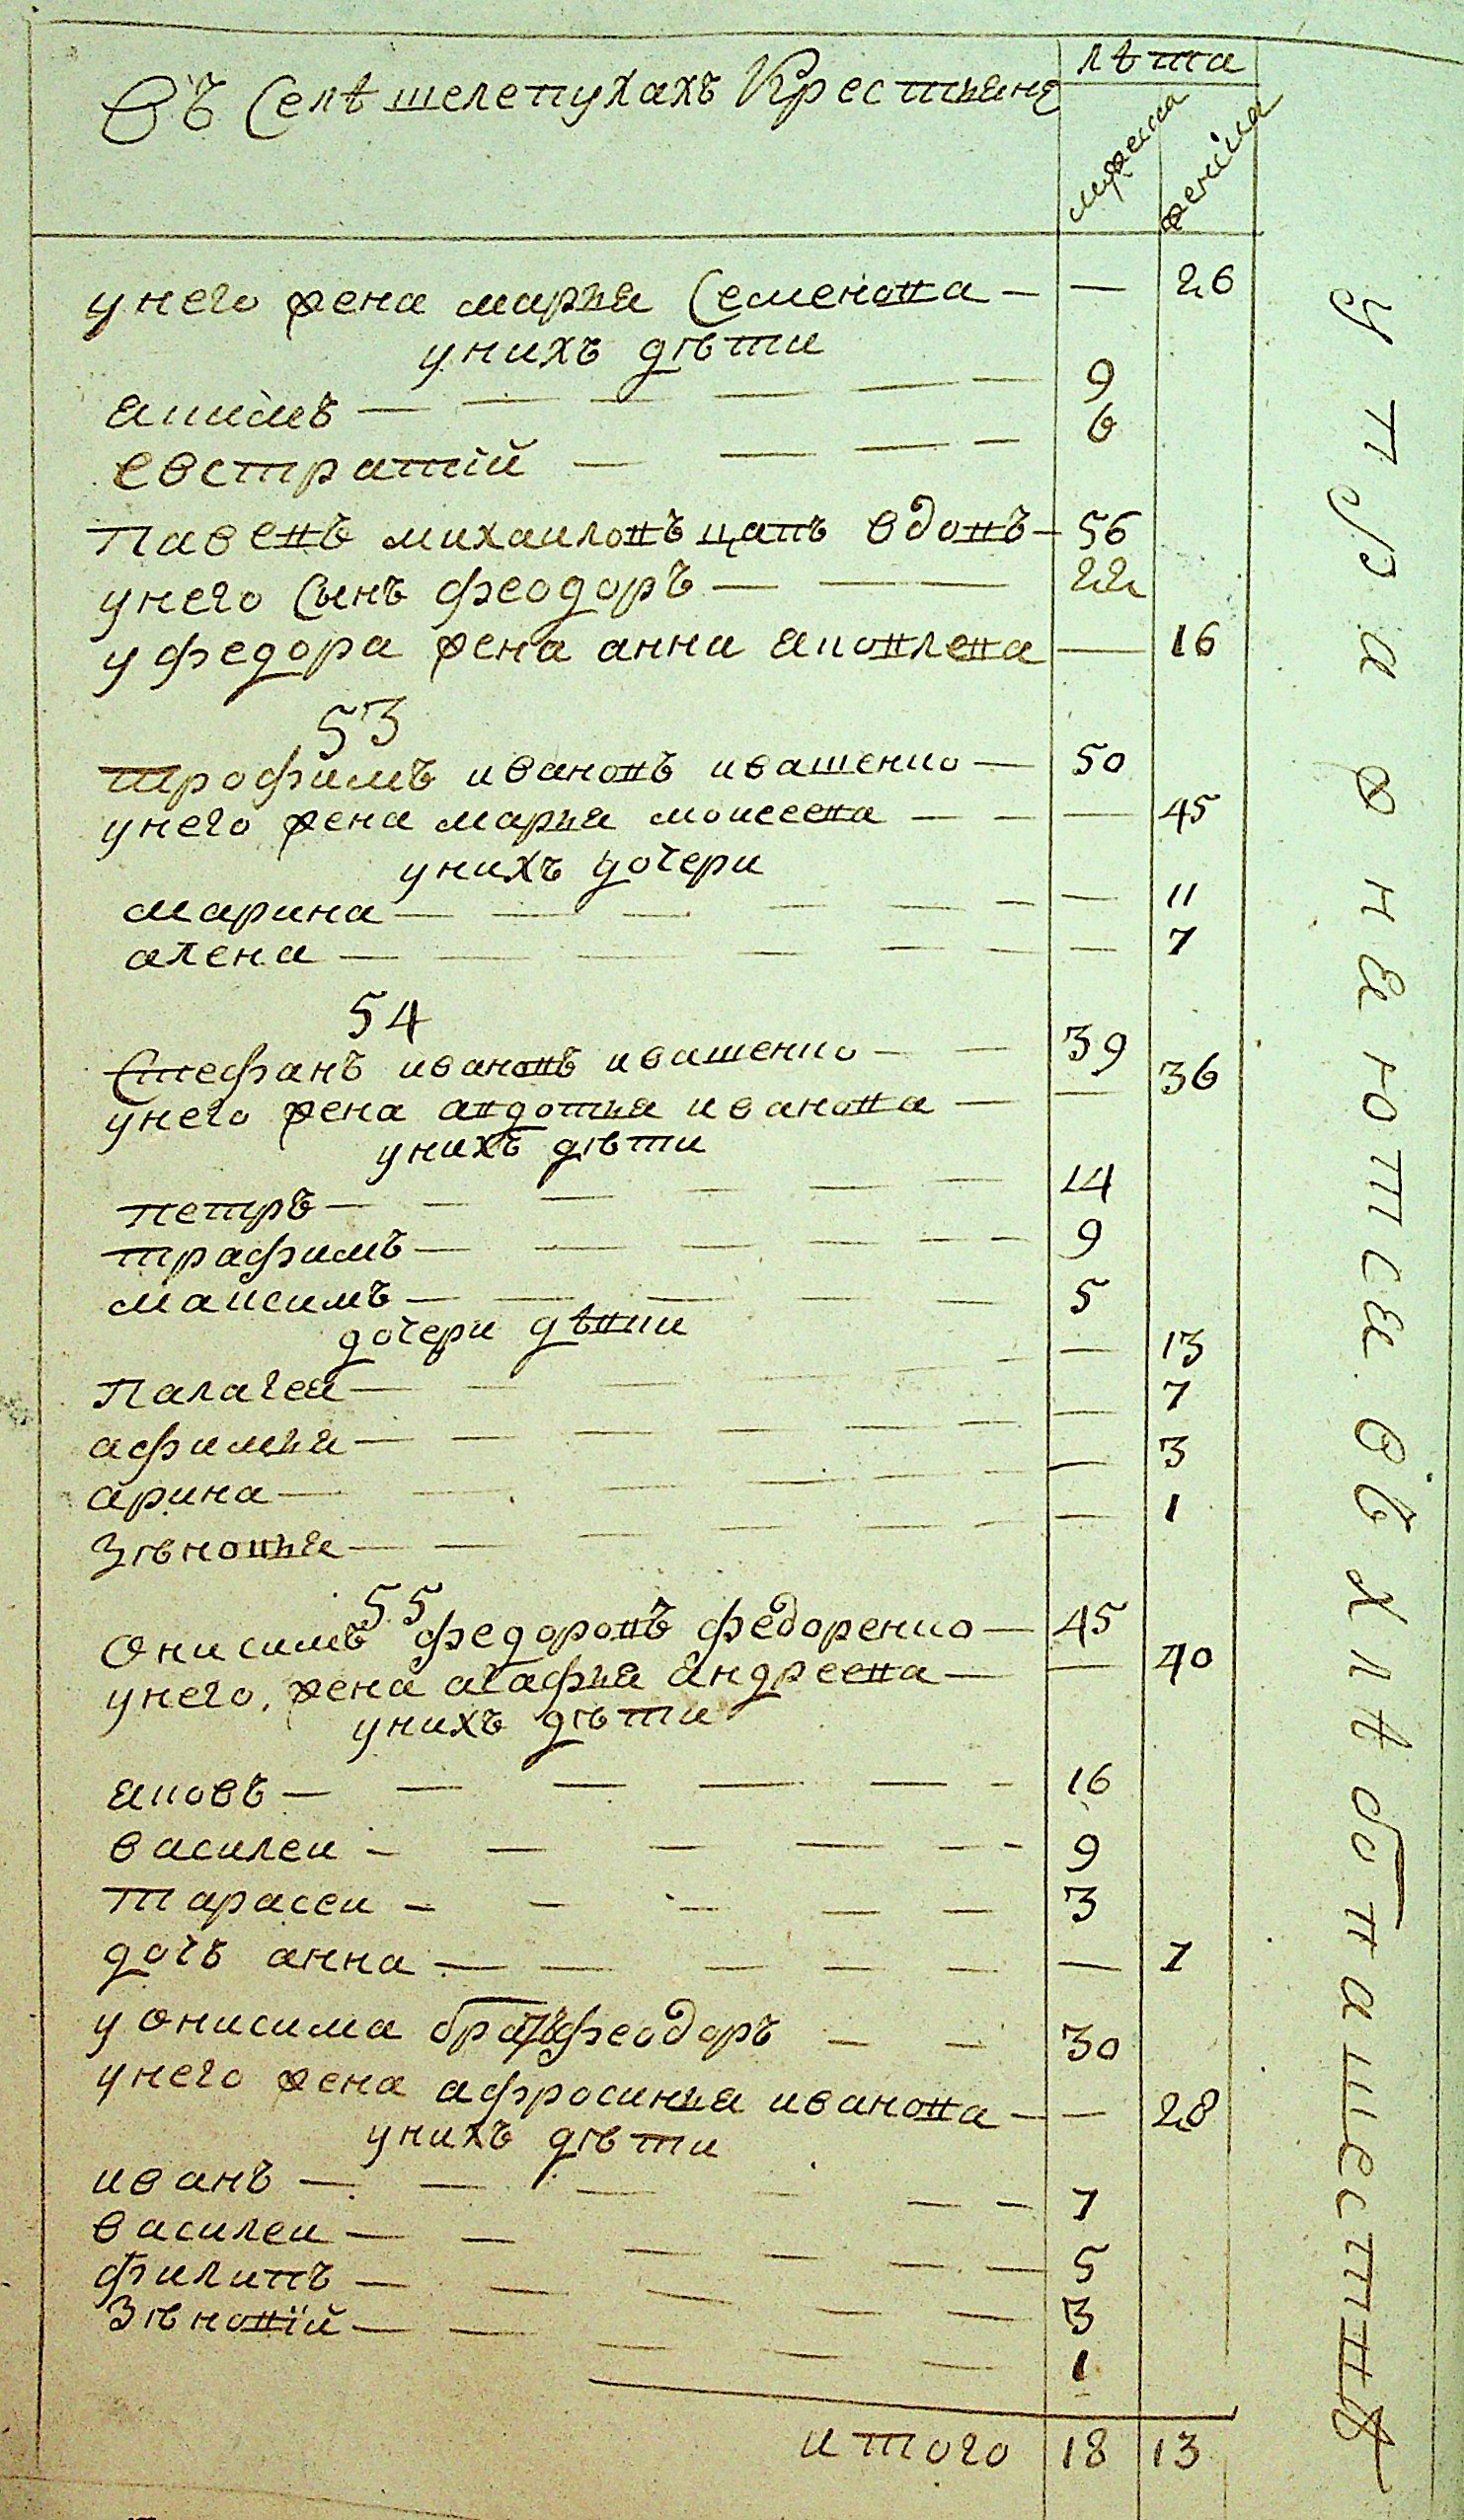 Въ Селѣ шелепухахъ Крестьяне
лѣта
мужеска
женска
у него жена марья Семенова — — 26
у нихъ дѣти
якимъ — 9
евстратій — 6
павелъ михаиловъ цапъ вдовъ — 56
у него сынъ феодоръ — 22
у федора жена анна яковлева — 16
53
трофимъ ивановъ ивашенко — 50
у него жена марья моисеева — — 45
у нихъ дочери
марина — — 11
алена — — 7
54
Стефанъ ивановъ ивашенко — 39
у него жена авдотья иванова — — 36
у нихъ дѣти
петръ — 14
трафимъ — 9
максимъ — 5
дочери дѣвки
палагея — — 13
афимья — — 7
арина — — 3
зѣновья — — 1
55
Онисимъ федоровъ федоренко — 45
у него жена агафья андреева — — 40
у нихъ дѣти
яковъ — 16
василеи — 9
тарасеи — 3
дочь анна — — 1
у онисима братъ феодоръ — 30
у него жена афросинья иванова — — 28
у нихъ дѣти
иванъ — 7
василеи — 5
филипъ — 3
Зѣновій — 1
итого 18 13
упражняются въ хлѣбопашествѣ